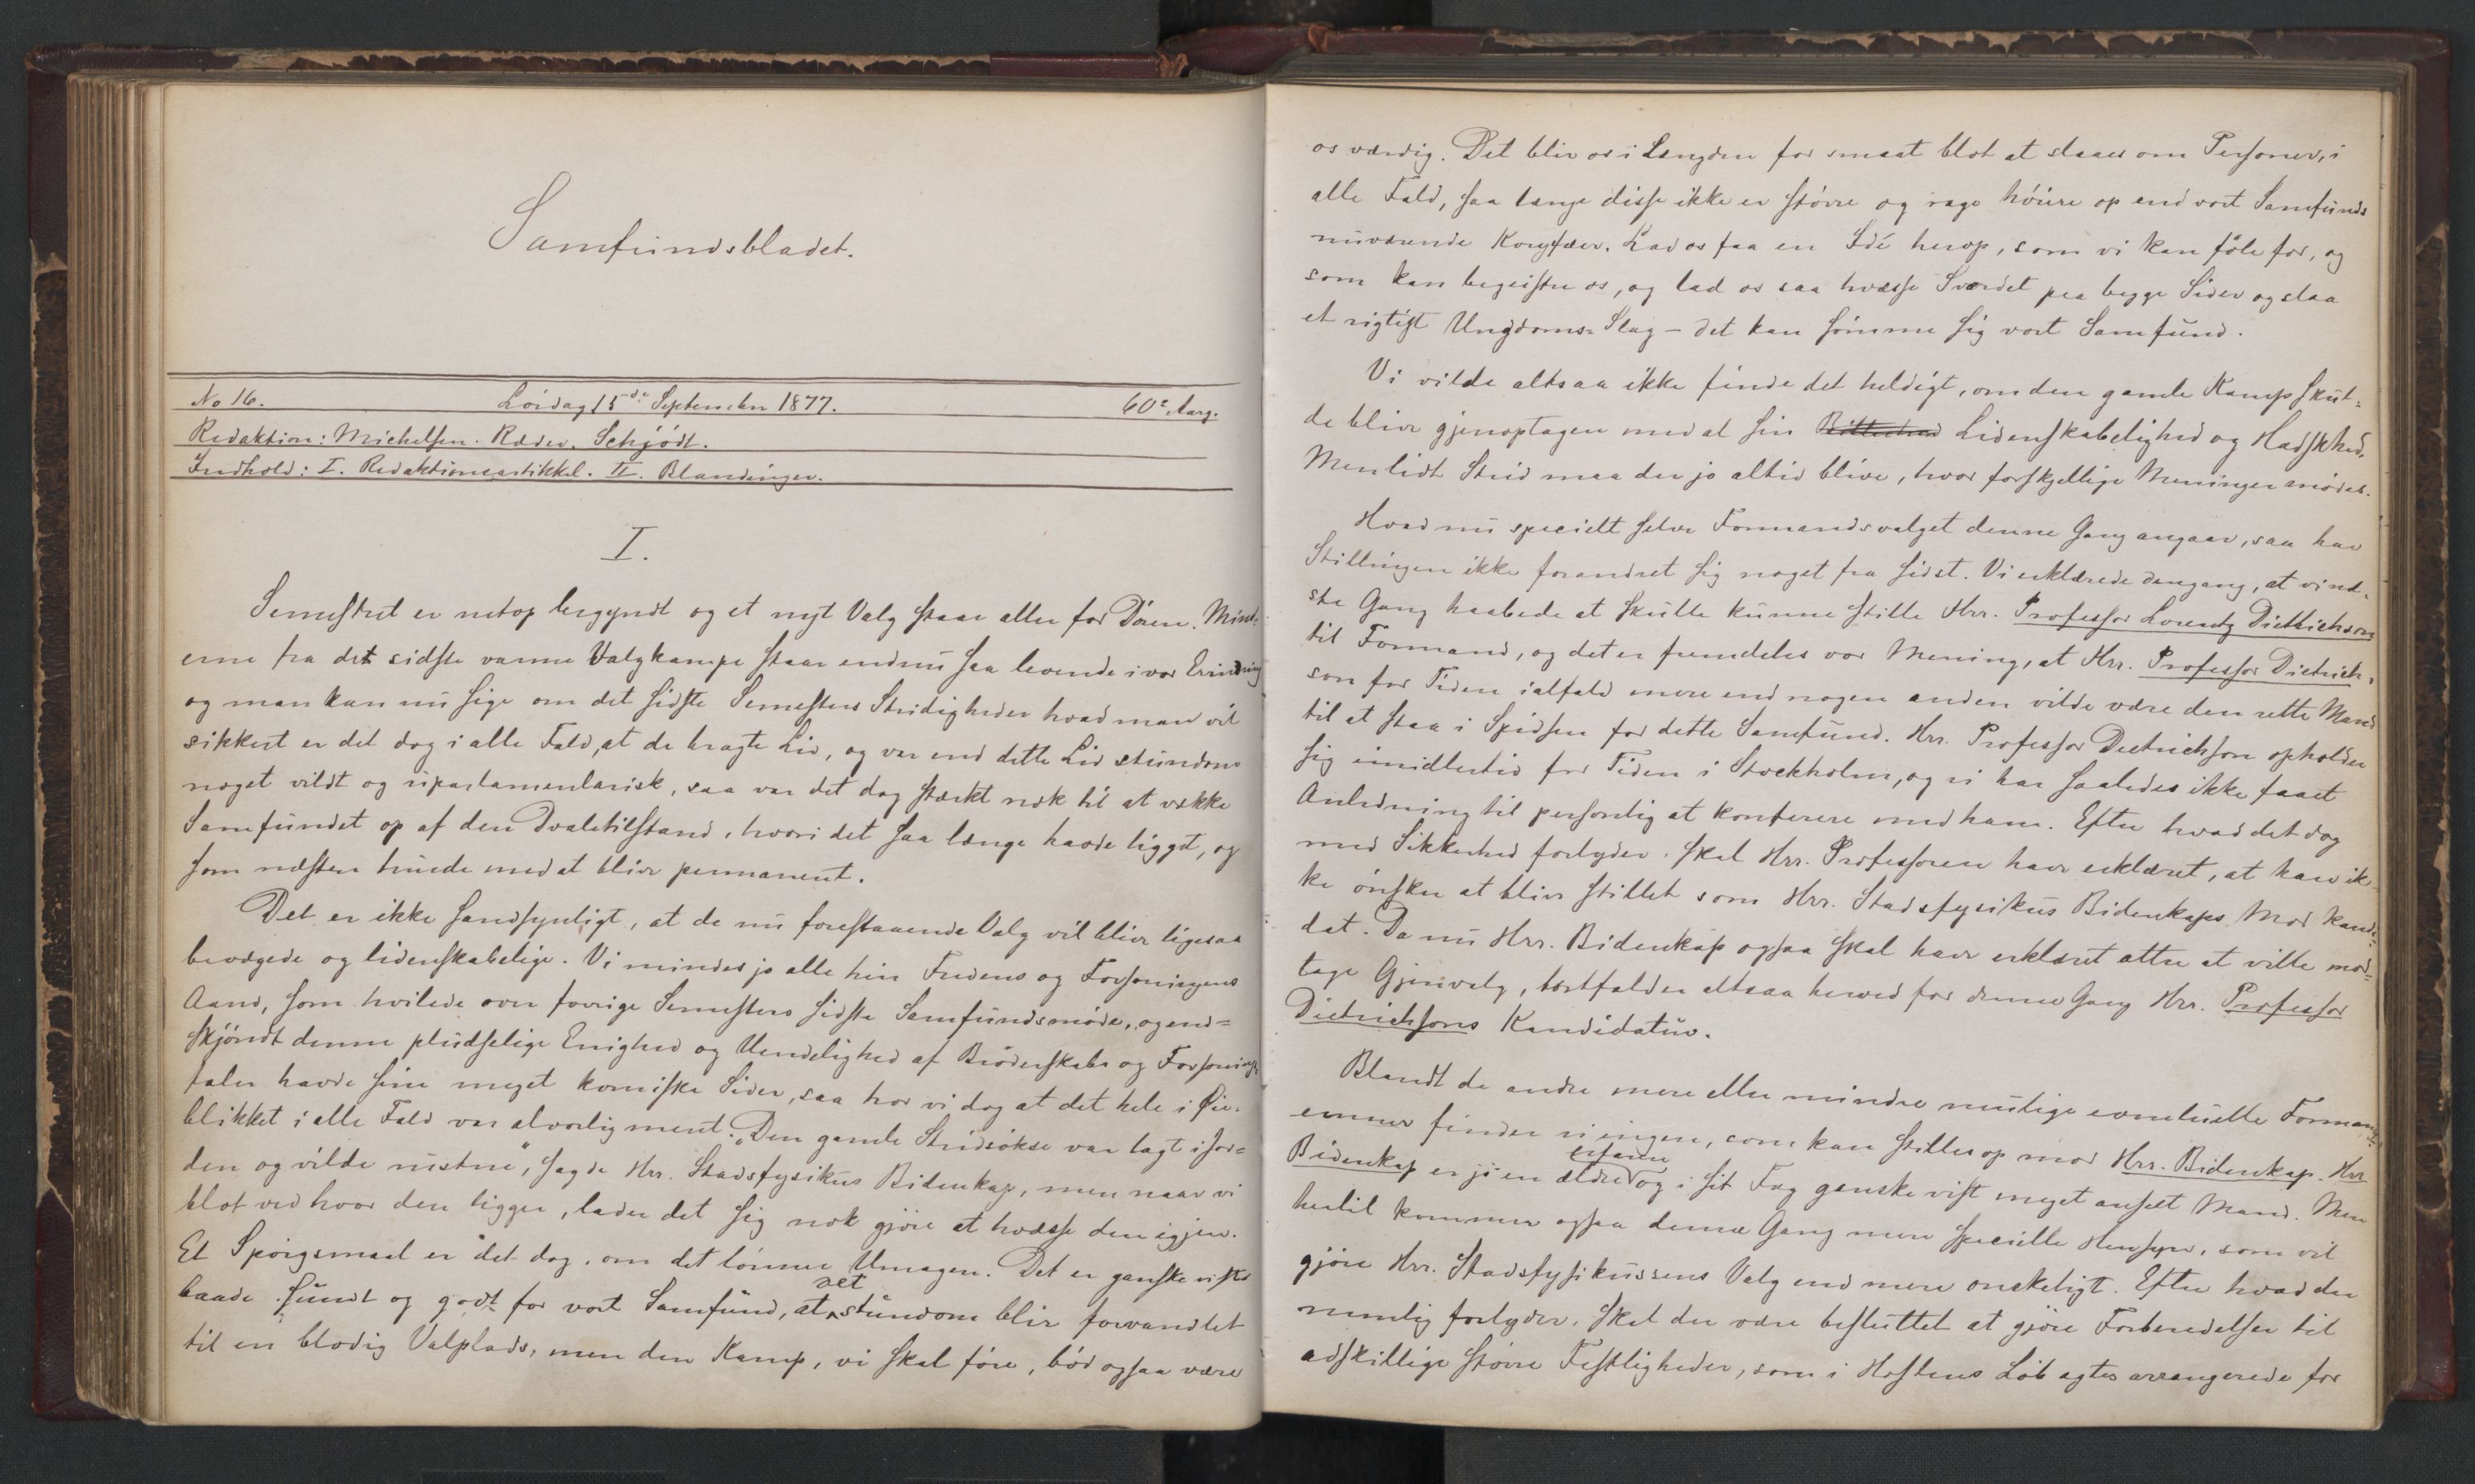 Samfundsbladet.
No 16. Löidag 15de September 1877. 60de Aarg.
Redaktion: Michelsen. Ræder. Schjödt.
Indhold: I. Redaktionsartikkel. II. Blandinger.
I.
Semestret er netop begyndt og et nyt Valg staar aller for Dören. Mind-
erne fra det sidste varme Valgkampe staar endnu saa levende i vor Erindring
og man kan nu sige om det sidste Semesters Stridigheder hvad man vil
sikkert er det dog i alle Fald, at de bragte Liv, og var end dette Liv stundom
noget vildt og uparlamentarisk, saa var det dog stærkt nok til at vække
Samfundet op af den Dvaletilstand, hvori det saa længe havde ligget, og
som næsten truede med at blive permanent.
Det er ikke sandsynligt, at de nu forestaaende Valg vil blive ligesaa
bevægede og lidenskabelige. Vi mindes jo alle hin Fredens og Forsoningens
Aand, som hvilede over forrige Semesters sidste Samfundsmöde, og end=
skjöndt denne pludselige Enighed og Uendelighed af Broderskabs og Forsonings
taler havde sine meget komiske Sider, saa tror vi dog at det hele i Öie-
blikket i alle Fald var alvorlig ment. "Den gamle Stridsökse var lagt i Jor=
den og vilde rustne", sagde Hrr. Stadsfysikus Bidenkap, men naar vi
blot ved hvor den ligger, lader det sig nok gjöre at hvæsse den igjen.
Et Spörgsmaal er det dog, om det lönner Umagen. Det er ganske visted
baade sundt og godt for vort Samfund, at det stundom blir forvandlet
til en blodig Valplads, men den Kamp, vi skal före, bör ogsaa være
os værdig. Det blir os i Længden for smaat blot at slaaes om Personer, i
alle Fald, saa længe disse ikke er större og rage höiere op end vort Samfunds
nuværende Koryfæer. Lad os faa en Idé herop, som vi kan föle for, og
som kan begeistre os, og lad os saa hvæsse Sværdet paa begge Sider og slaa
et rigtigt Ungdoms=Slag – det kan sömme sig vort Samfund.
Vi vilde altsaa ikke finde det heldigt, om den gamle Kamp skul=
de blive gjenoptagen med al sin Lidenskabelighed og Hadskhed.
Men lidt Strid maa der jo altid blive, hvor forskjellige Meninger mödes.
Hvad nu specielt selve Formandsvalget denne Gang angaar, saa har
Stillingen ikke forandret sig noget fra sidst. Vi erklærede dengang, at vi næ-
ste Gang haabede at skulle kunne stille Hrr. Professor Lorentz Dietrichson
til Formand, og det er fremdeles vor Mening, at Hrr. Professor Dietrich-
son for Tiden ialfald mere end nogen anden vilde være den rette Mand
til at staa i Spidsen for dette Samfund. Hrr. Professor Dietrichson opholder
sig imidlertid for Tiden i Stockholm, og vi har saaledes ikke faaet
Anledning til personlig at konferere med ham. Efter hvad det dog
med Sikkerhed forlyder, skal Hrr. Professoren have erklæret, at han ik-
ke önsker at blive stillet som Hrr. Stadsfysikus Bidenkaps Modkandi-
dat. Da nu Hrr. Bidenkap ogsaa skal have erklæret atter at ville mod=
tage Gjenvalg, bortfalder altsaa herved for denne Gang Hrr. Professor
Dietrichsons Kandidatur.
Blandt de andre mere eller mindre mulige eventuelle Formands-
emner finder vi ingen, som kan stilles op mod Hrr. Bidenkap. Hrr
Bidenkap er jo en ældre erfaren og i sit Fag ganske vist meget anseet Mand. Men
hertil kommer ogsaa denne Gang mere specielle Hensyn, som vil
gjöre Hrr. Stadsfysikussens Valg end mere önskeligt. Efter hvad der
nemlig forlyder, skal der være besluttet at gjöre Forberedelser til
adskillige större Festligheder, som i Höstens Löb agtes arrangerede for